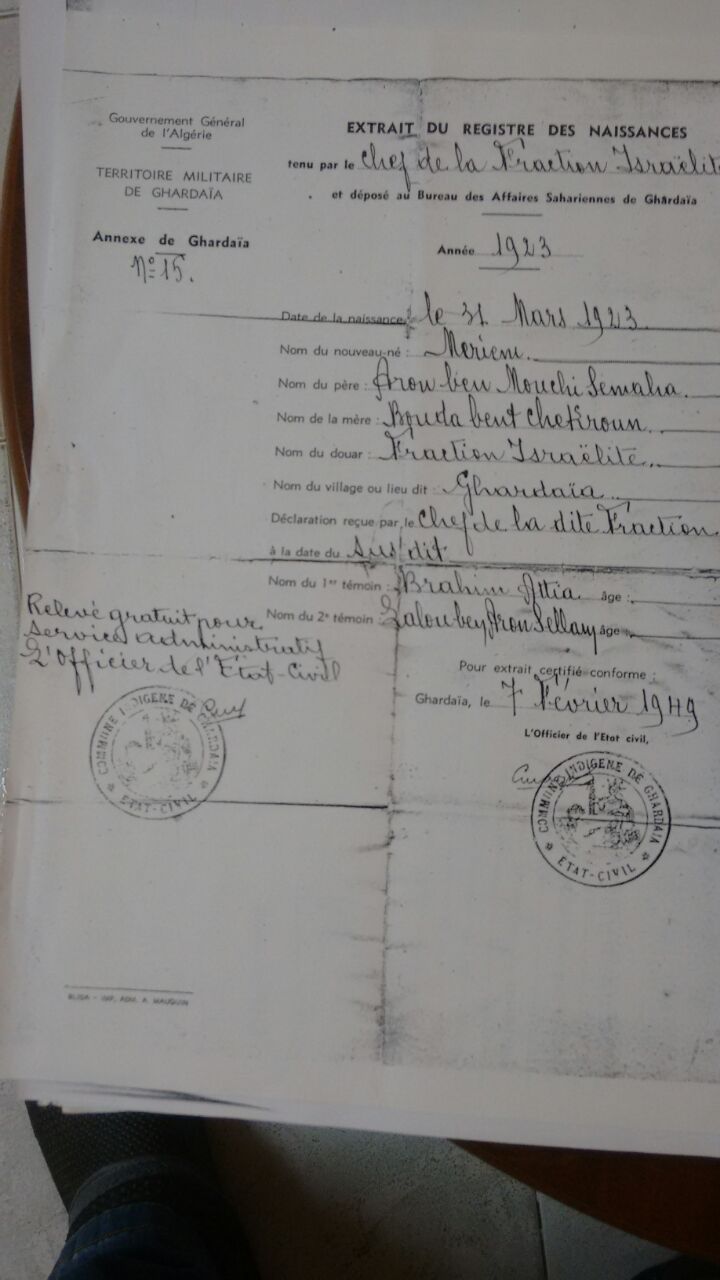 Gouvernement Général
de l'Algérie
TERRITOIRE MILITAIRE
DE GHARDAÏA
Annexe de Ghardaïa
N° 15.
EXTRAIT DU REGISTRE DES NAISSANCES
tenu par le Chef de la Fraction Israëlite
et déposé au Bureau des Affaires Sahariennes de Ghardaïa
Année 1923
Date de la naissance : le 31 Mars 1923
Nom du nouveau-né : Meriem
Nom du père : Aron ben Mouchi Semaha
Nom de la mère : Bouda bent Chekroun
Nom du douar : Fraction Israëlite
Nom du village ou lieu dit : Ghardaïa
Déclaration reçue par le Chef de la dite Fraction
à la date du Sus dit
Nom du 1er témoin : Brahim Attia âge :
Nom du 2e témoin : Aron Sellam âge :
Relevé gratuit pour
Service administratif
L'Officier de l'Etat-Civil
Pour extrait certifié conforme :
Ghardaïa, le 7 Février 1949
L'Officier de l'Etat civil,
COMMUNE INDIGENE DE GHARDAIA
ETAT-CIVIL
COMMUNE INDIGENE DE GHARDAIA
ETAT-CIVIL
BLIDA - IMP. ADM. A. MAUGUIN